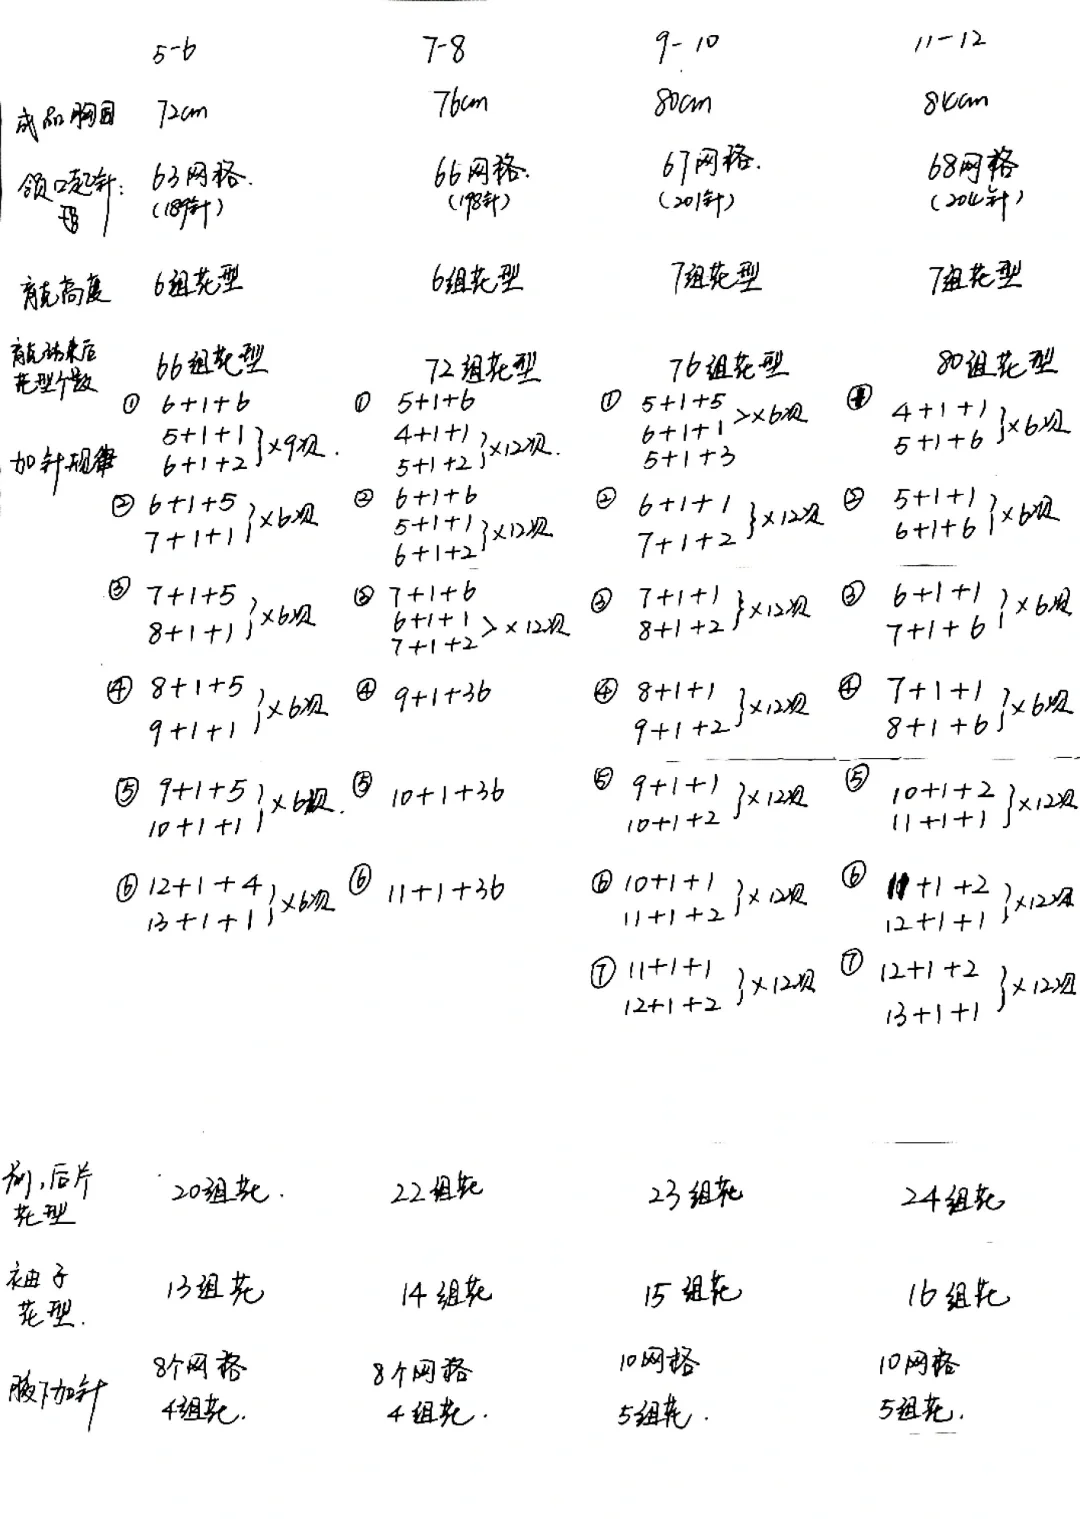 5-6 7-8 9-10 11-12
成品胸围 72cm 76cm 80cm 84cm
领口起针: 63网格. 66网格. 67网格. 68网格
(189针) (198针) (201针) (204针)
育克高度 6组花型 6组花型 7组花型 7组花型
育克结束后
花型个数 66组花型 72组花型 76组花型 80组花型
加针规律
① 6+1+6
5+1+1
6+1+2 }×9次.
② 6+1+5
7+1+1 }×6次
③ 7+1+5
8+1+1 }×6次
④ 8+1+5
9+1+1 }×6次
⑤ 9+1+5
10+1+1 }×6次.
⑥ 12+1+4
13+1+1 }×6次
① 5+1+6
4+1+1
5+1+2 }×12次.
② 6+1+6
5+1+1
6+1+2 }×12次
③ 7+1+6
6+1+1
7+1+2 >×12次
④ 9+1+36
⑤ 10+1+36
⑥ 11+1+36
① 5+1+5
6+1+1 >×6次
5+1+3
② 6+1+1
7+1+2 }×12次
③ 7+1+1
8+1+2 }×12次
④ 8+1+1
9+1+2 }×12次
⑤ 9+1+1
10+1+2 }×12次
⑥ 10+1+1
11+1+2 }×12次
⑦ 11+1+1
12+1+2 }×12次
① 4+1+1
5+1+6 }×6次
② 5+1+1
6+1+6 }×6次
③ 6+1+1
7+1+6 }×6次
④ 7+1+1
8+1+6 }×6次
⑤ 10+1+2
11+1+1 }×12次
⑥ 11+1+2
12+1+1 }×12次
⑦ 12+1+2
13+1+1 }×12次
前,后片
花型 20组花. 22组花 23组花 24组花
袖子
花型. 13组花 14组花 15组花 16组花
腋下加针 8个网格 8个网格 10网格 10网格
4组花. 4组花. 5组花. 5组花.